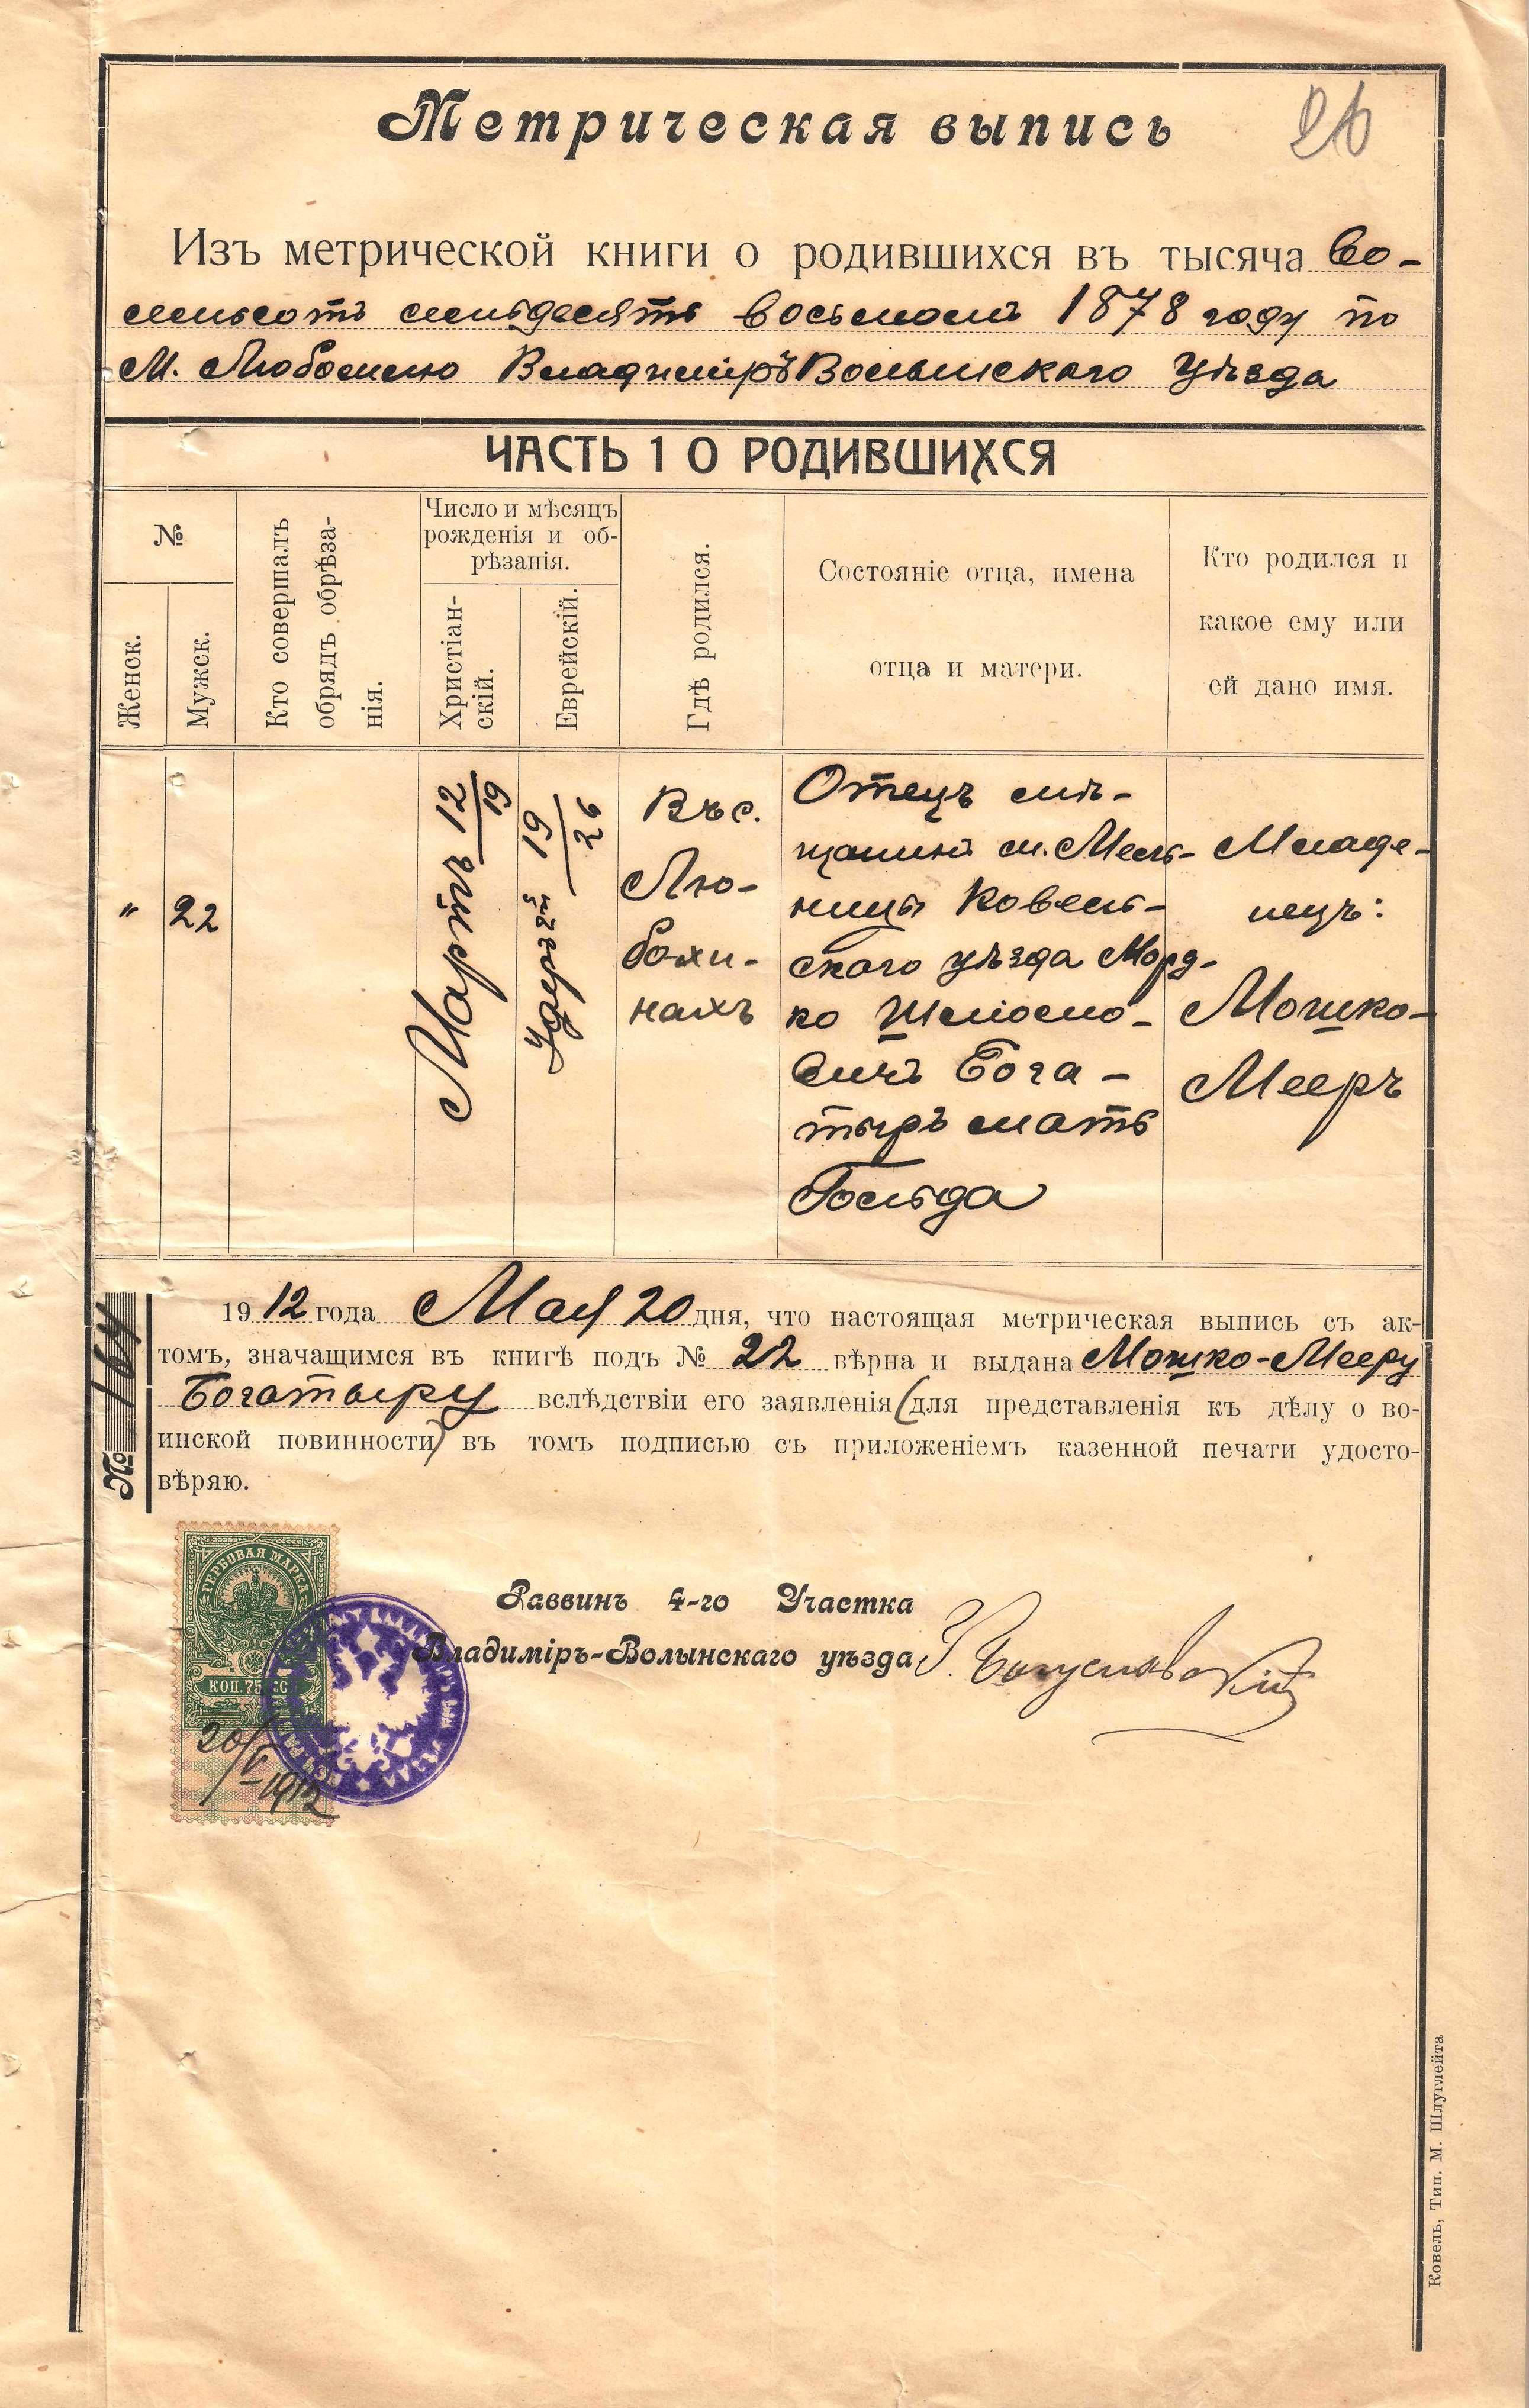 Метрическая выпись
26
Изъ метрической книги о родившихся въ тысяча во-
семьсотъ семьдесятъ восьмомъ 1878 году по
М. Любомлю Владиміръ Волынскаго Уѣзда
ЧАСТЬ 1 О РОДИВШИХСЯ
№
Женск.
Мужск.
Кто совершалъ
обрядъ обрѣза-
нія.
Число и мѣсяцъ
рожденія и об-
рѣзанія.
Христіан-
скій.
Еврейскій.
Гдѣ родился.
Состояніе отца, имена
отца и матери.
Кто родился и
какое ему или
ей дано имя.
"
22
Мартъ 12/19
19/26
Въ с.
Лю-
бохи-
нахъ
Отецъ мѣ-
щанинъ м. Мель-
ницы Ковель-
скаго уѣзда Морд-
ко Шліомо-
вичъ Бога-
тыръ мать
Гольда
Младе-
нецъ:
Мошко-
Мееръ
№ 164
1912 года Мая 20 дня, что настоящая метрическая выпись съ ак-
томъ, значащимся въ книгѣ подъ № 22 вѣрна и выдана Мошко-Мееру
Богатыру вслѣдствіи его заявленія (для представленія къ дѣлу о во-
инской повинности) въ томъ подписью съ приложеніемъ казенной печати удосто-
вѣряю.
ГЕРБОВАЯ МАРКА
КОП. 75
20/V-1912
Раввинъ 4-го Участка
Владиміръ-Волынскаго уѣзда
Ковель, Тип. М. Шлуглейта